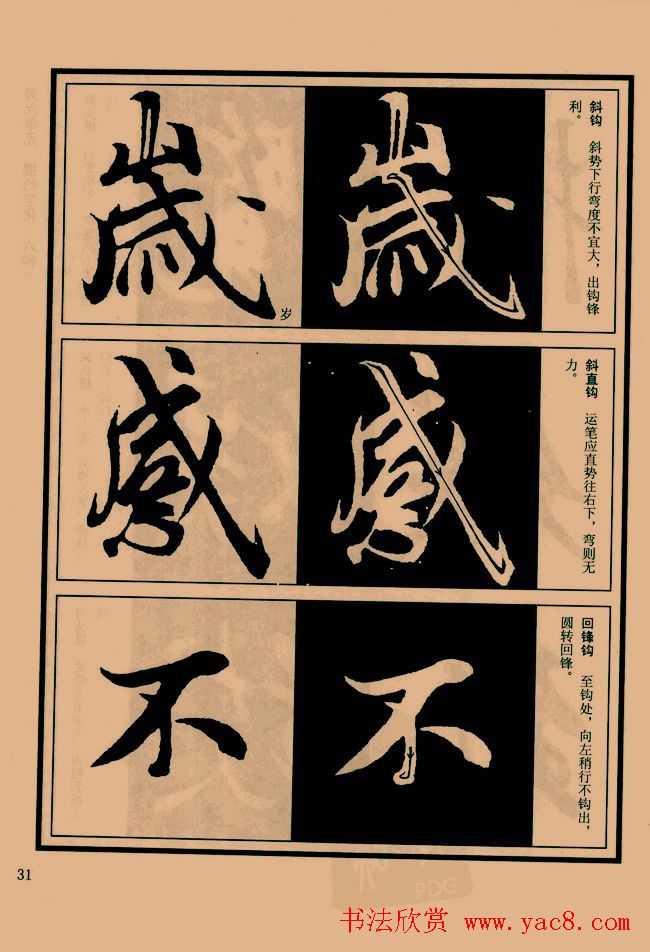 歲
岁
斜钩　斜势下行弯度不宜大，出钩锋
利。
感
斜直钩　运笔应直势往右下，弯则无
力。
不
回锋钩　至钩处，向左稍行不钩出，
圆转回锋。
31
PDG
书法欣赏 www.yac8.com